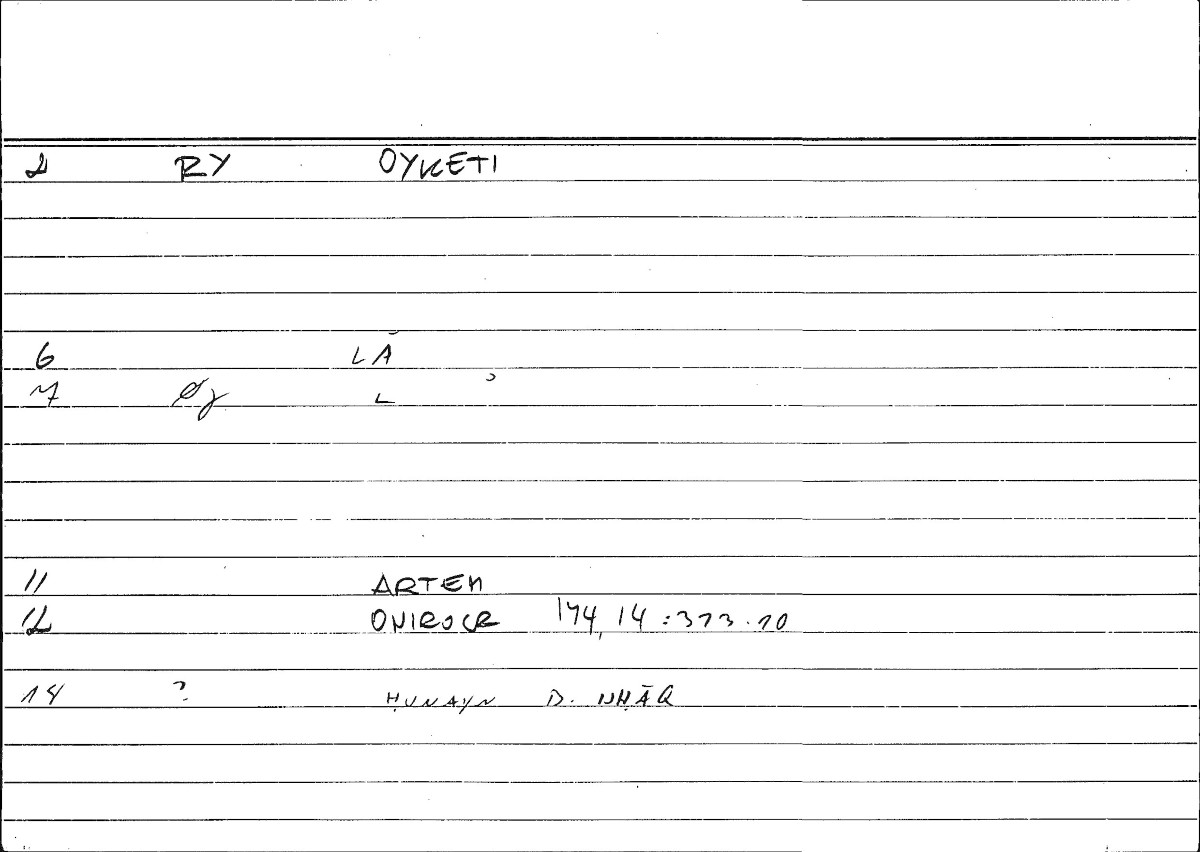 2 RY OYKETI
6 LĀ
7 Øy L
11 ARTEM
12 ONIROCR 174,14:313.10
14 ? ḤUNAYN B.